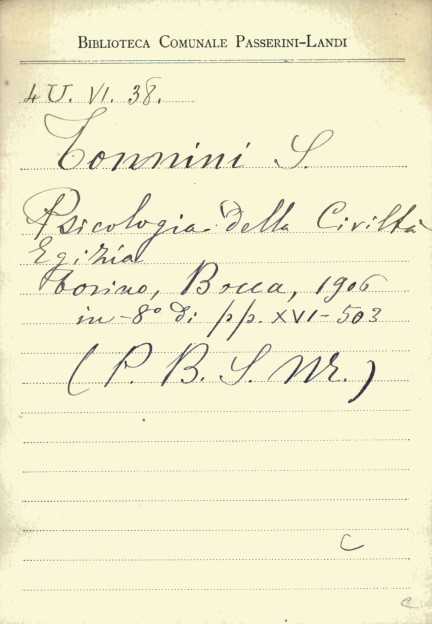 BIBLIOTECA COMUNALE PASSERINI-LANDI
4 U. VI. 38.
Tonnini S.
Psicologia della Civiltà
Egizia
Torino, Bocca, 1906
in-8° di pp. XVI-503
(P. B. S. Mr.)
C
C